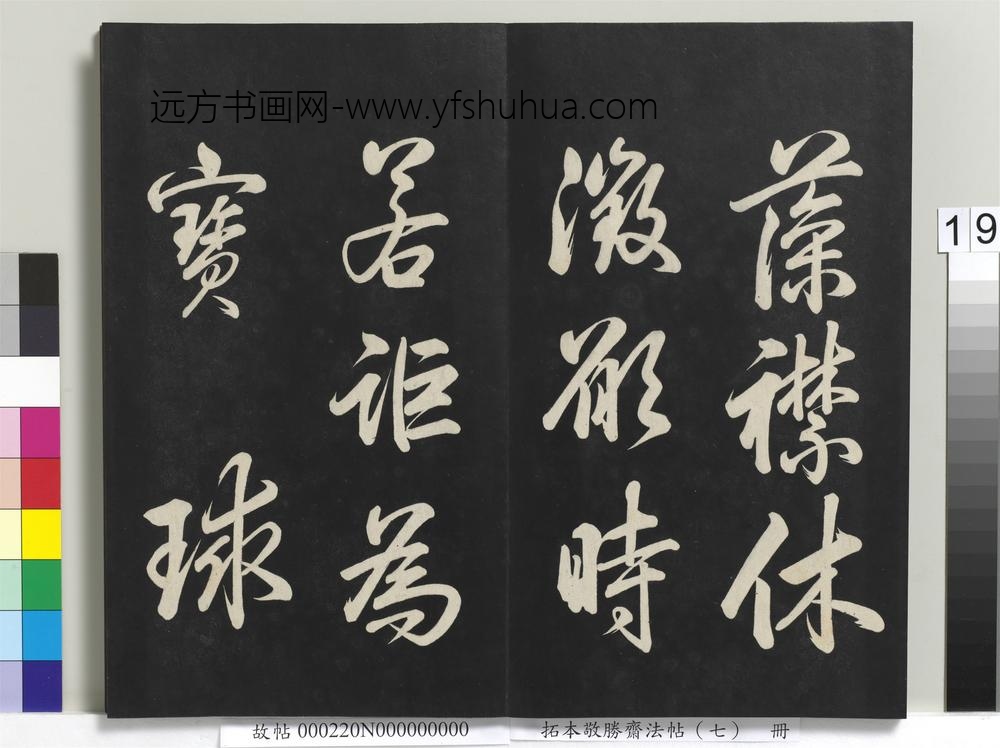 远方书画网-www.yfshuhua.com
藻襟休
徵願時
若詎為
寶球
19
故帖 000220N000000000
拓本敬勝齋法帖（七） 冊